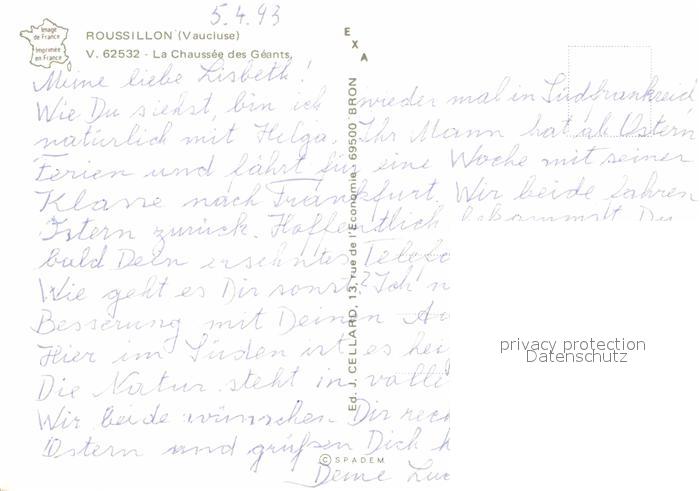 5.4.93
Image de France
Imprimée en France
ROUSSILLON (Vaucluse)
V. 62532 - La Chaussée des Géants.
EXA
Ed. J. CELLARD, 13, rue de l'Economie - 69500 BRON
Meine liebe Lisbeth!
Wie Du siehst, bin ich wieder mal in Südfrankreich
natürlich mit Helga. Ihr Mann hat ab Ostern
Ferien und fährt für eine Woche mit seiner
Klasse nach Frankfurt. Wir beide fahren
Ostern zurück. Hoffentlich bekommst Du
bald Dein ersehntes Telefo
Wie geht es Dir sonst? Ich
Besserung mit Deinen Au
Hier im Süden ist es hei
Die Natur steht in volle
Wir beide wünschen Dir rec
Ostern und grüßen Dich
Deine
privacy protection
Datenschutz
© SPADEM